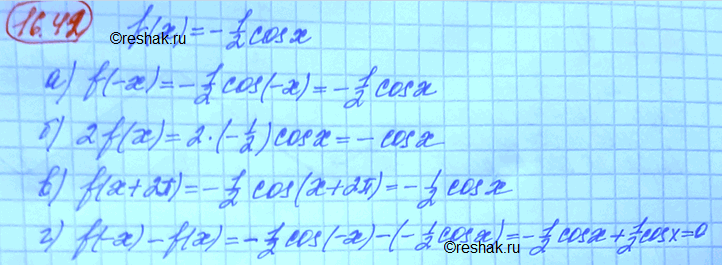 16.42 f(x) = -1/2 cosx
©reshak.ru
а) f(-x) = -1/2 cos(-x) = -1/2 cosx
б) 2f(x) = 2·(-1/2)cosx = -cosx
в) f(x+2π) = -1/2 cos(x+2π) = -1/2 cosx
г) f(-x) - f(x) = -1/2 cos(-x) - (-1/2 cosx) = -1/2 cosx + 1/2 cosx = 0
©reshak.ru
©reshak.ru